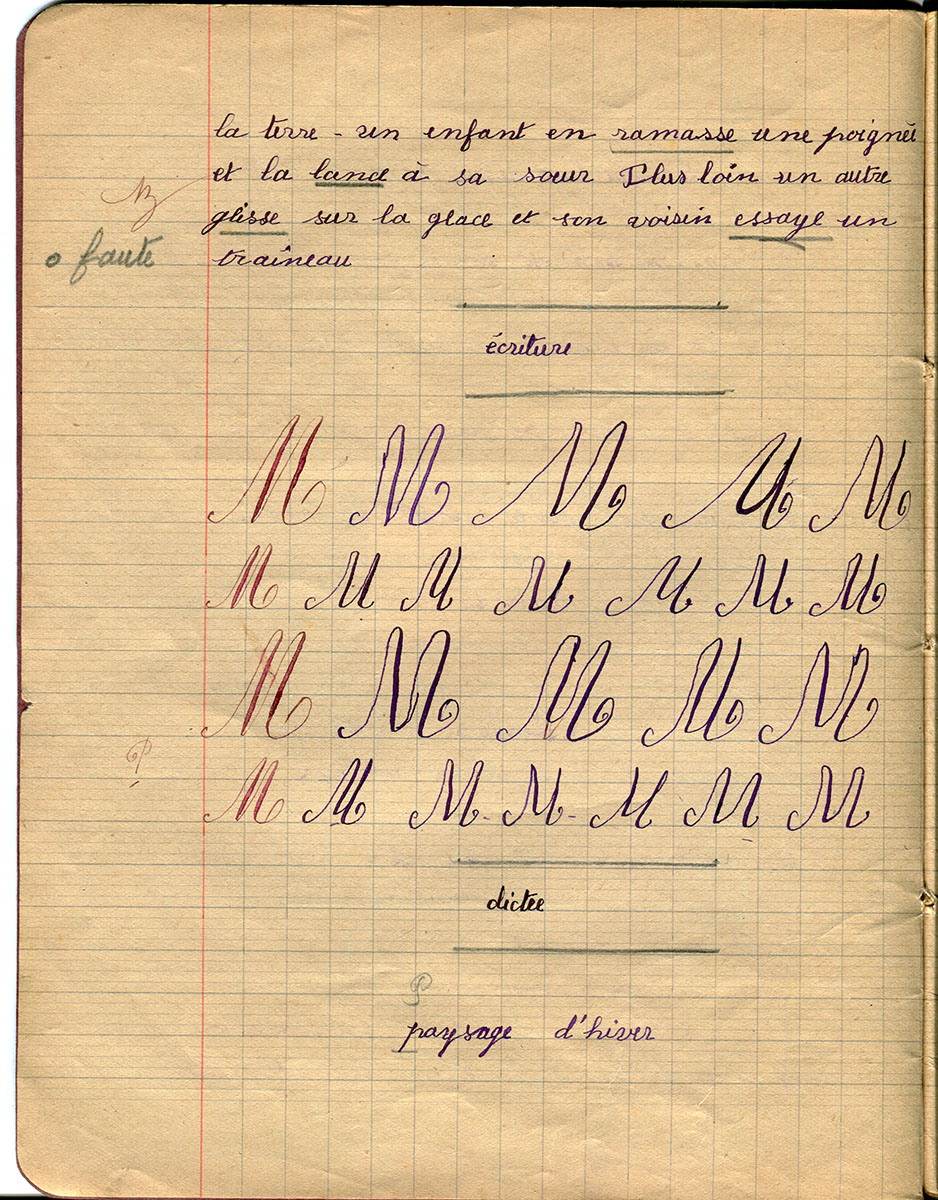 la terre - un enfant en ramasse une poignée
et la lance à sa sœur Plus loin un autre
glisse sur la glace et son voisin essaye un
0 faute
traîneau
écriture
M M M M M
M M M M M M M
M M M M M
P
M M M M M M M
dictée
P
paysage d'hiver